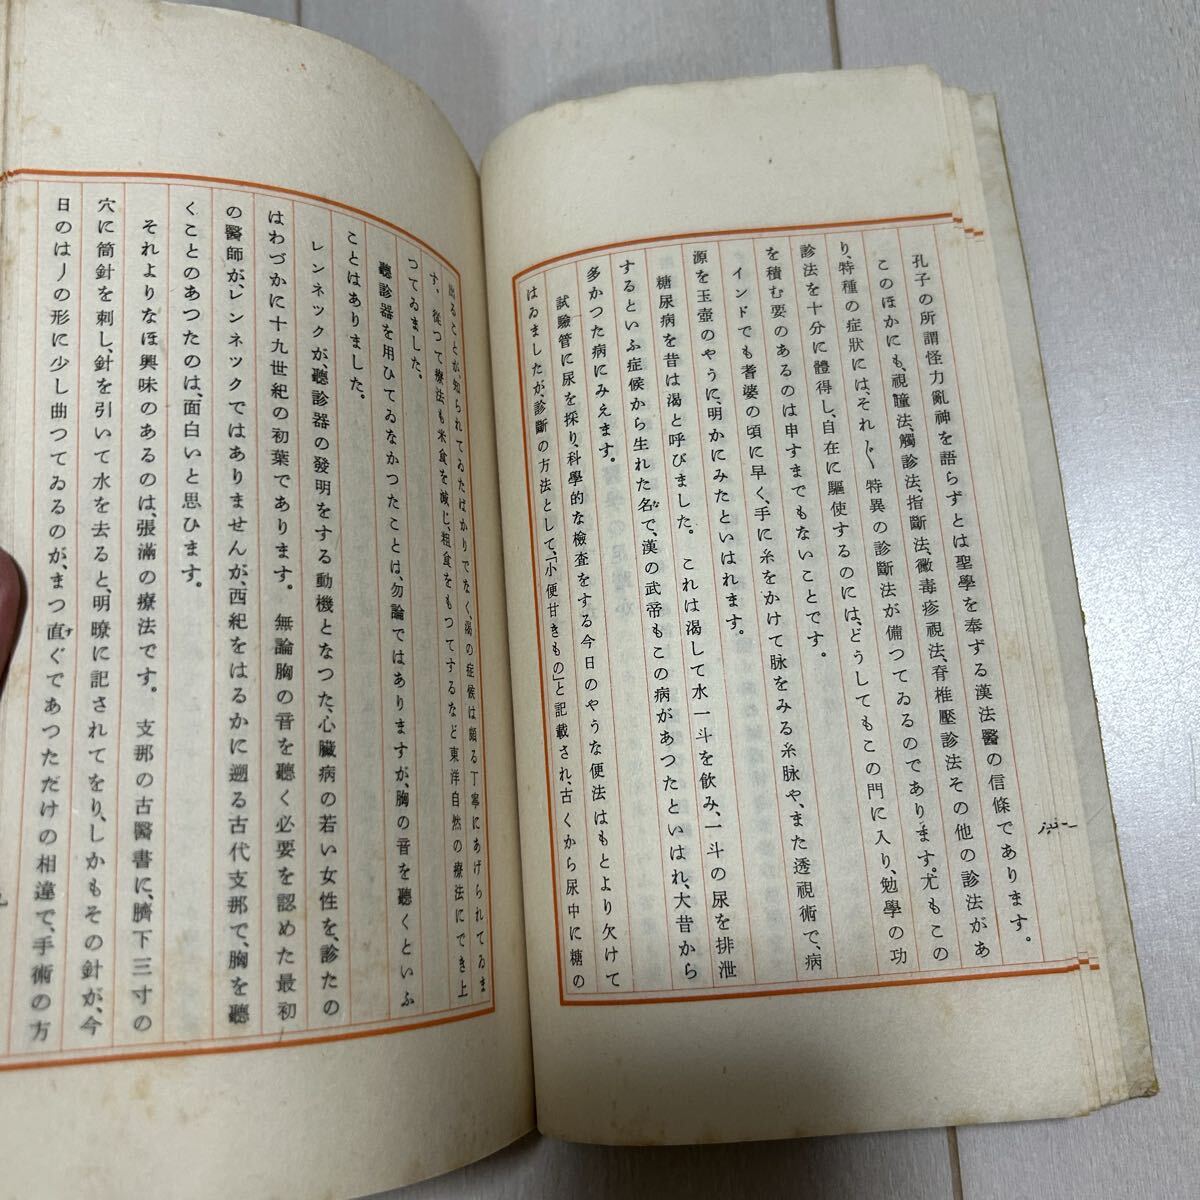 孔子の所謂怪力亂神を語らずとは聖學を奉ずる漢法醫の信條であります。
このほかにも、視瞳法、觸診法、指斷法、黴毒疹視法、脊椎壓診法その他の診法があ
り、特種の症狀には、それ〴〵特異の診斷法が備つてゐるのであります。尤もこの
診法を十分に體得し、自在に驅使するのには、どうしてもこの門に入り、勉學の功
を積む要のあるのは申すまでもないことです。
インドでも耆婆の頃に早く、手に糸をかけて脉をみる糸脉や、また透視術で、病
源を玉壺のやうに、明かにみたといはれます。
糖尿病を昔は渴と呼びました。これは渴して水一斗を飲み、一斗の尿を排泄
するといふ症候から生れた名で、漢の武帝もこの病があつたといはれ、大昔から
多かつた病にみえます。
試驗管に尿を採り、科學的な檢查をする今日のやうな便法はもとより欠けて
はゐましたが、診斷の方法として、「小便甘きもの」と記載され、古くから尿中に糖の
出ることが、知られてゐたばかりでなく、渴の症候は頗る丁寧にあげられてゐま
す。從つて療法も米食を減じ、粗食をもつてするなど東洋自然の療法にでき上
つてゐました。
聽診器を用ひてゐなかつたことは、勿論ではありますが、胸の音を聽くといふ
ことはありました。
レンネックが、聽診器の發明をする動機となつた、心臟病の若い女性を、診たの
はわづかに十九世紀の初葉であります。無論胸の音を聽く必要を認めた最初
の醫師が、レンネックではありませんが、西紀をはるかに遡る古代支那で、胸を聽
くことのあつたのは、面白いと思ひます。
それよりなほ興味のあるのは、張滿の療法です。支那の古醫書に、臍下三寸の
穴に筒針を刺し、針を引いて水を去ると、明瞭に記されてをり、しかもその針が、今
日のは丿の形に少し曲つてゐるのが、まつ直ぐであつただけの相違で、手術の方